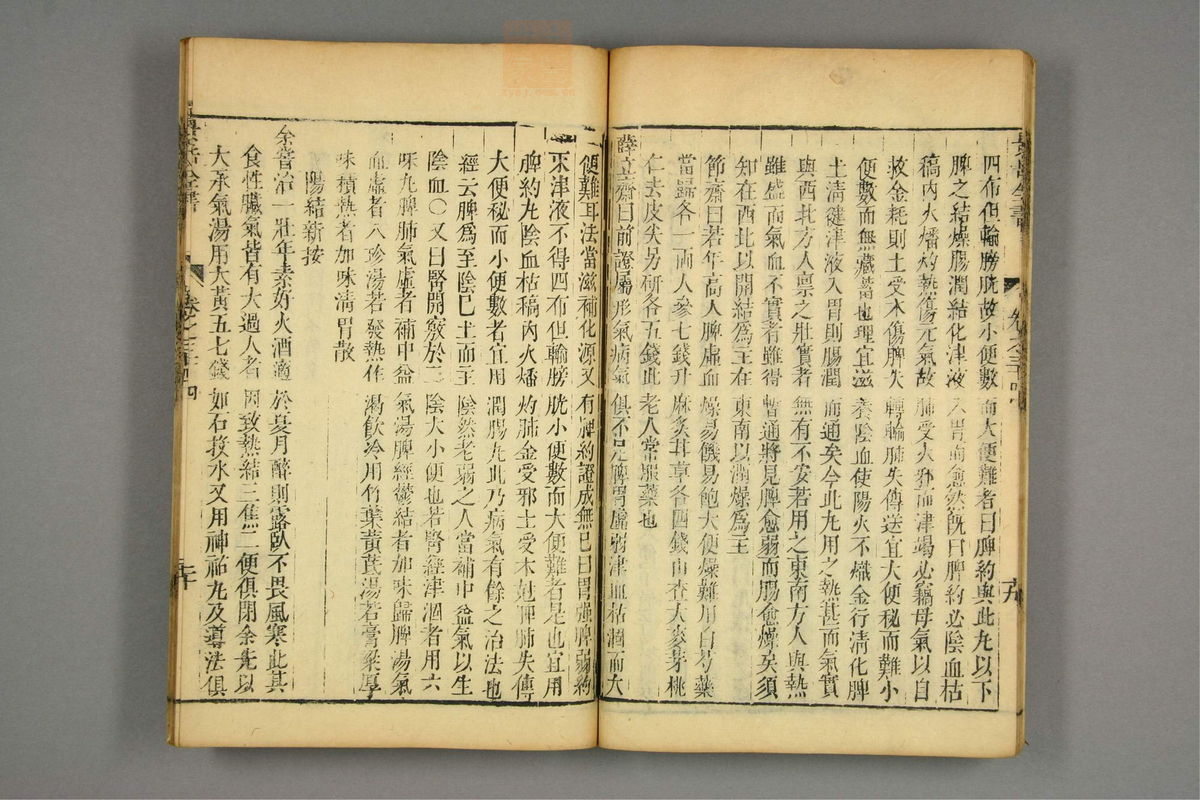 四布但輸膀胱故小便數而大便難者曰脾約與此丸以下
脾之結燥腸潤結化津液入胃而愈然既曰脾約必陰血枯
稿內火燔灼熱傷元氣故肺受火邪而津竭必竊母氣以自
救金耗則土受木傷脾失轉輸肺失傳送宜大便秘而難小
便數而無藏蓄也理宜滋養陰血使陽火不熾金行清化脾
土清健津液入胃則腸潤而通矣今此丸用之熱甚而氣實
與西北方人禀之壯實者無有不安若用之東南方人與熱
雖盛而氣血不實者雖得暫通將見脾愈弱而腸愈燥矣須
知在西北以開結爲主在東南以潤燥爲主
節齋曰若年高人脾虛血燥易饑易飽大便燥難用白芍藥
當歸各一兩人參七錢升麻炙甘草各四錢山查大麥芽桃
仁去皮尖另研各五錢此老人常服藥也
薛立齋曰前證屬形氣病氣俱不足脾胃虛弱津血枯涸而大
便難耳法當滋補化源又有脾約證成無已曰胃強脾弱約
束津液不得四布但輸膀胱小便數而大便難者是也宜用
脾約丸陰血枯稿內火燔灼肺金受邪土受木尅脾肺失傳
大便秘而小便數者宜用潤腸丸此乃病氣有餘之治法也
經云脾爲至陰巳土而主陰然老弱之人當補中益氣以生
陰血〇又曰腎開竅於二陰大小便也若腎經津涸者用六
味丸脾肺氣虛者補中益氣湯脾經鬱結者加味歸脾湯氣
血虛者八珍湯若發熱作渴飲冷用竹葉黃芪湯若膏粱厚
味積熱者加味清胃散
陽結新按
余嘗治一壯年素好火酒適於夏月醉則露臥不畏風寒此其
食性臟氣皆有大過人者因致熱結三焦二便俱閉余先以
大承氣湯用大黃五七錢如石投水又用神祐丸及導法俱
景岳全書
卷之三十四
十九
景岳全書
卷之三十四
二十